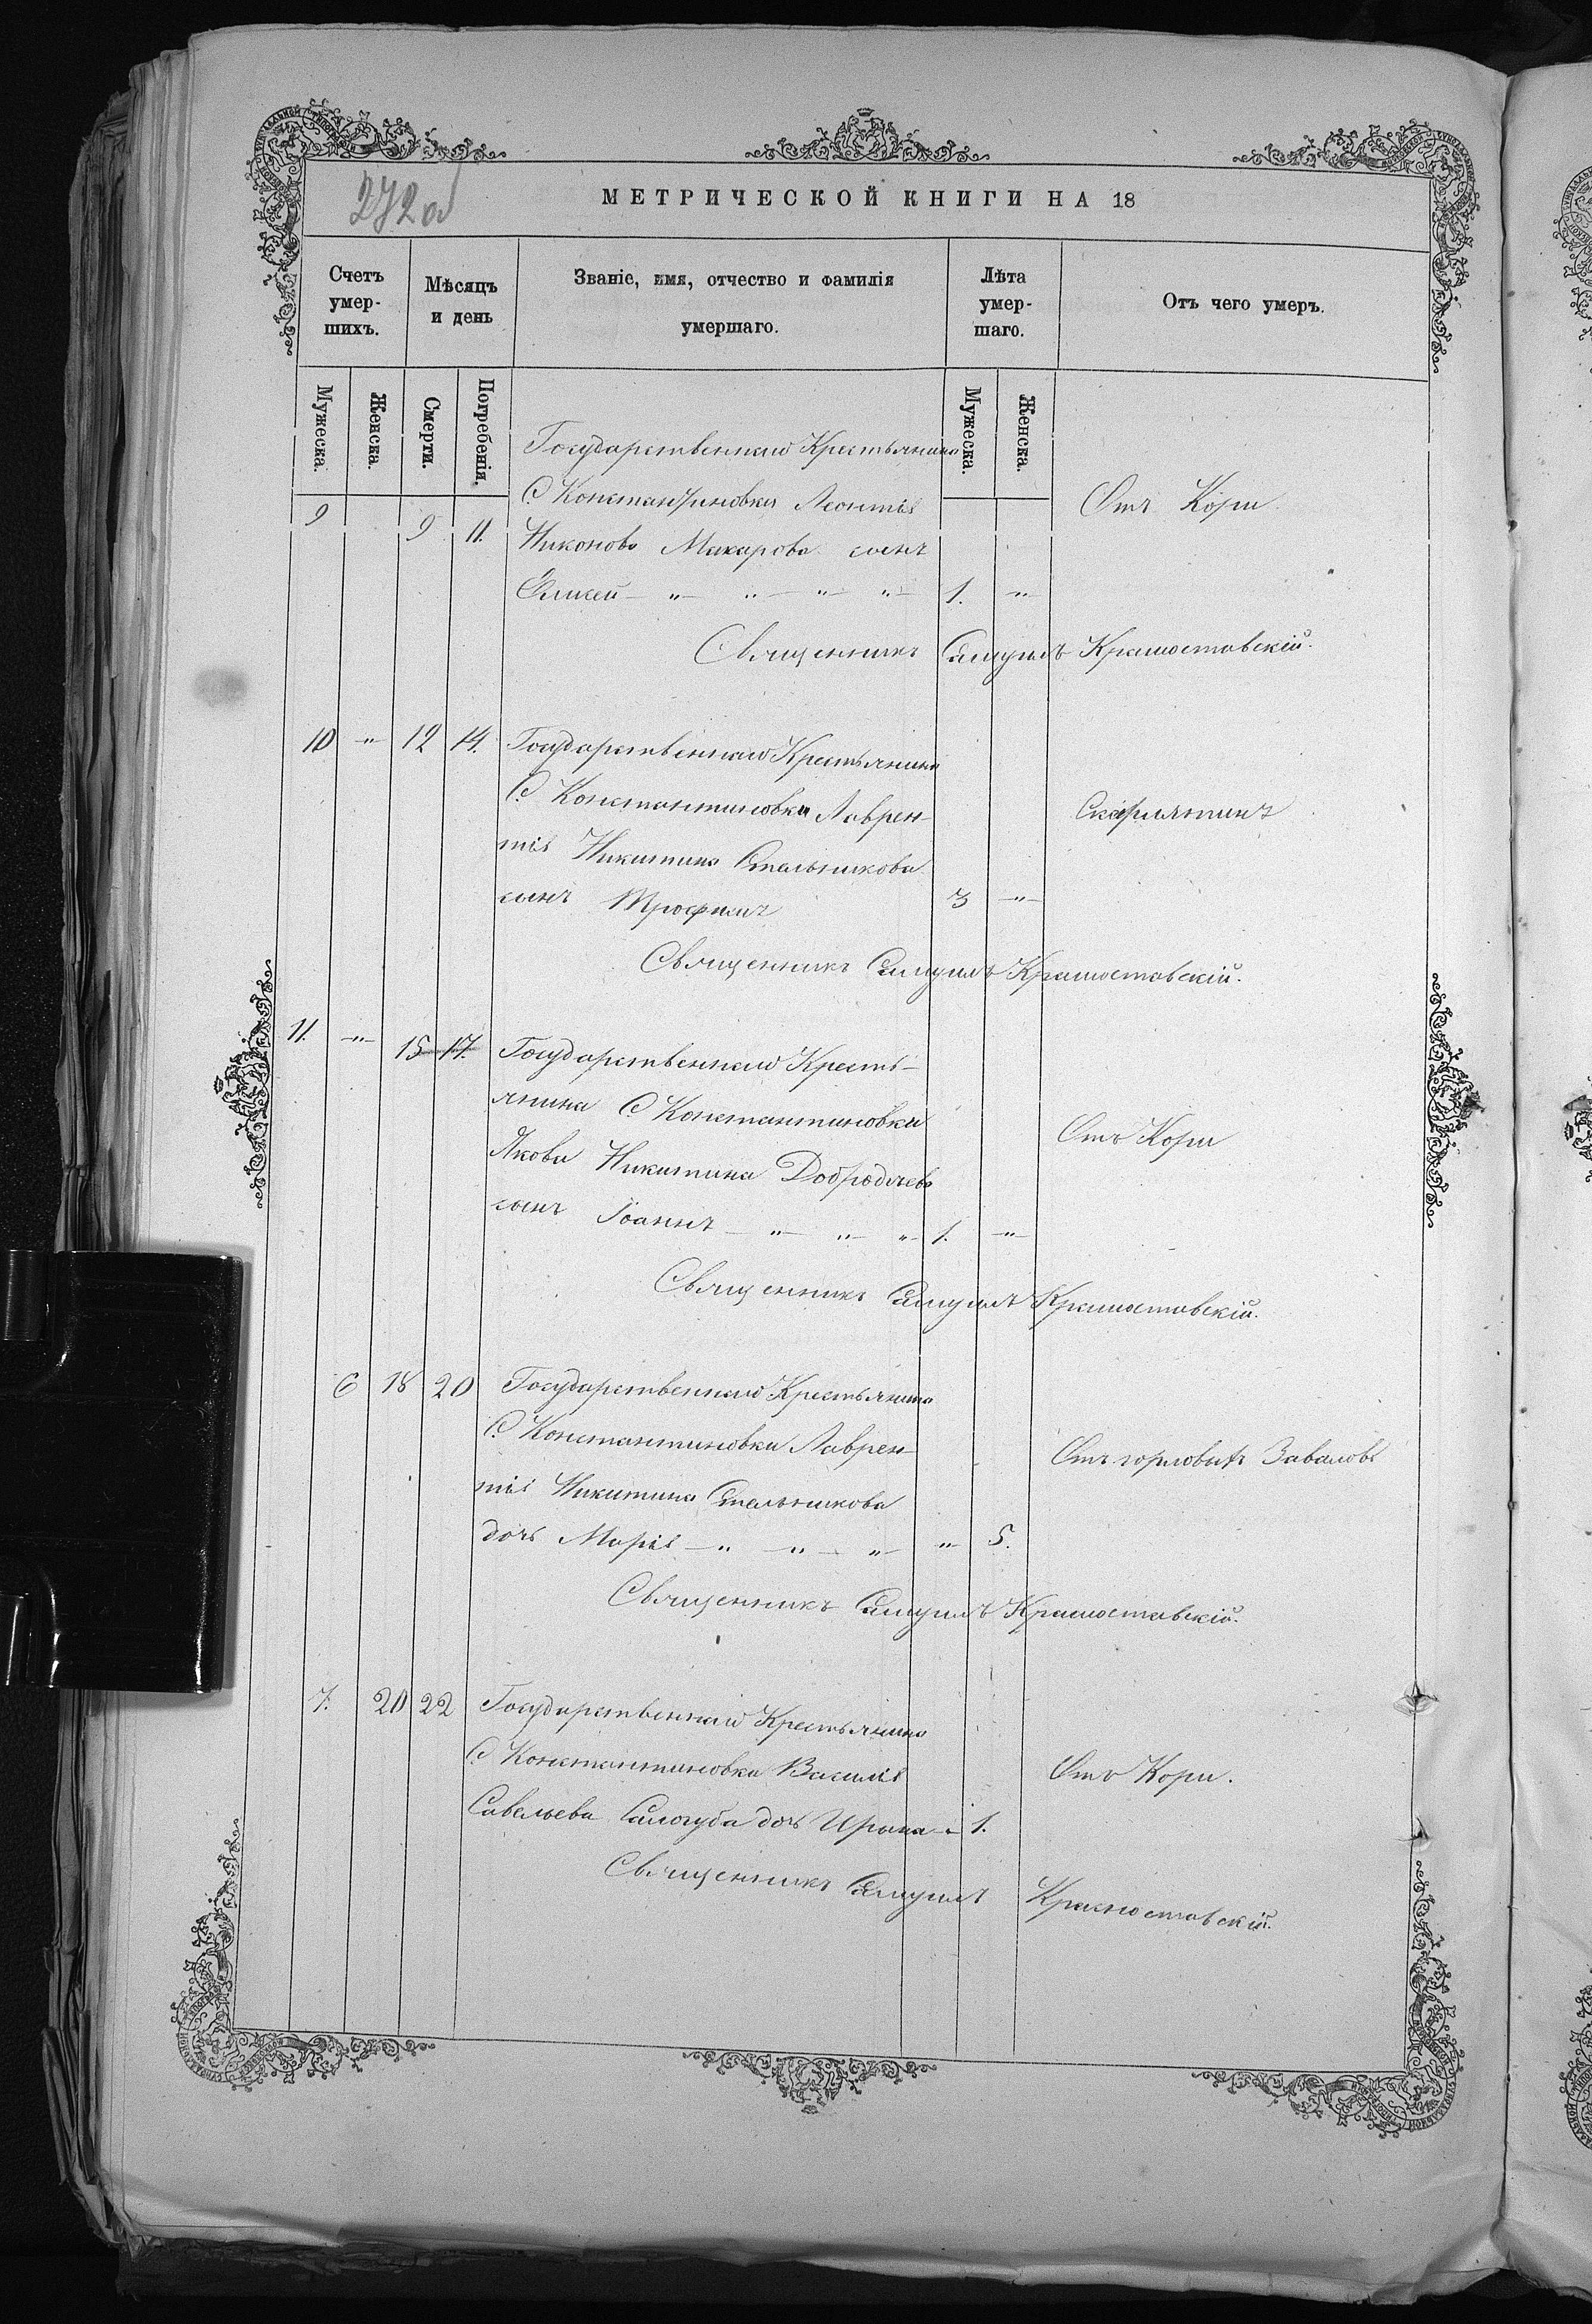 272об
МЕТРИЧЕСКОЙ КНИГИ НА 18
Счетъ умер-шихъ.
Мѣсяцъ и день
Званіе, имя, отчество и фамилія умершаго.
Лѣта умер-шаго.
Отъ чего умеръ.
Мужеска.
Женска.
Смерти.
Погребенія.
Мужеска.
Женска.
Государственнаго Крестьянина
9 9 11. С. Константиновки Леонтія Отъ Кори
Никонова Макарова сынъ
Еликей — „ — „ — „ — „ — 1. „
Священникъ Самуилъ Красноставскій.
10 „ 12 14. Государственнаго Крестьянина
С. Константиновки Лаврен- Скарлятинъ
тія Никитина Стальникова
сынъ Трофимъ 3 „
Священникъ Самуилъ Красноставскій.
11. „ 15 17. Государственнаго Кресть-
янина С Константиновки Отъ Кори
Якова Никитина Добродѣева
сынъ Іоаннъ — „ — „ — „ 1. „
Священникъ Самуилъ Красноставскій.
6 18 20 Государственнаго Крестьянина
С. Константиновки Лаврен- Отъ горловыхъ Заваловъ
тія Никитина Стальникова
дочь Марія — „ — „ — „ — „ 5.
Священникъ Самуилъ Красноставскій.
7. 20 22 Государственнаго Крестьянина
С. Константиновки Василія Отъ Кори.
Савельева Салогуба дочь Ирина „ 1.
Священникъ Самуилъ Красноставскій.